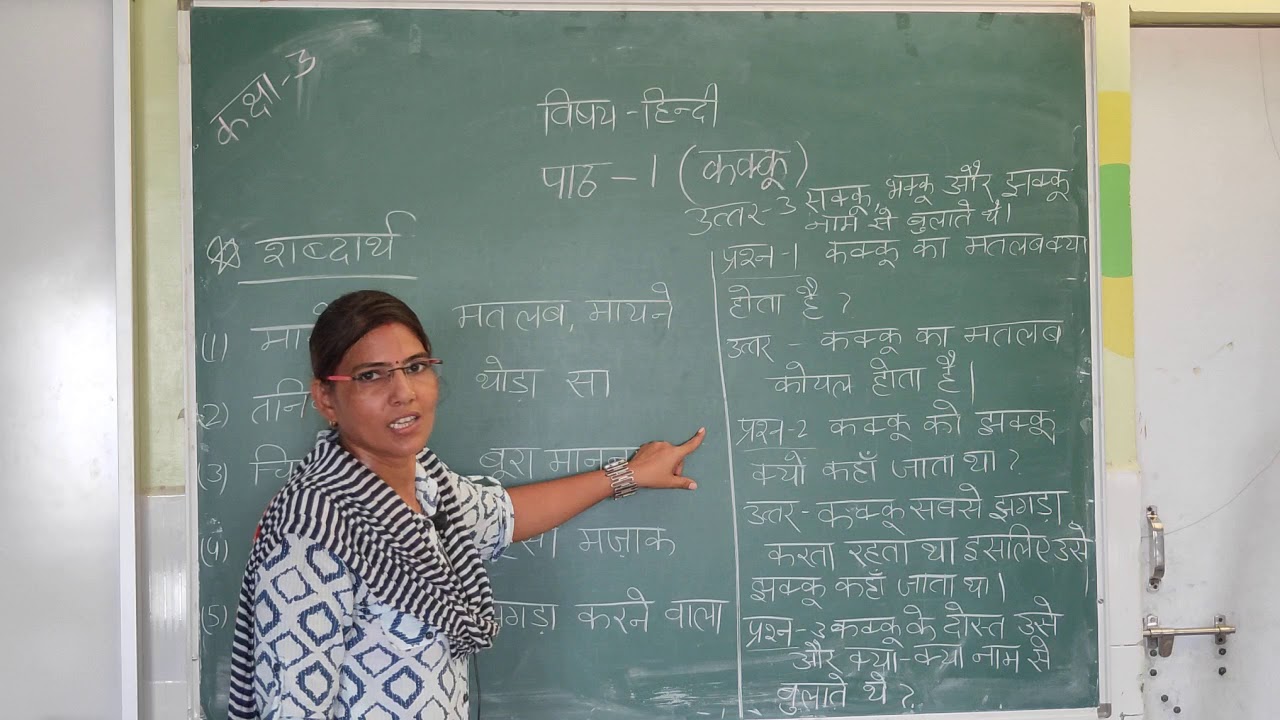 कक्षा-3
विषय-हिन्दी
पाठ-1 (कक्कू)
शब्दार्थ
(1) मतलब, मायने
(2) तनि थोड़ा सा
(3) बूरा
(4) मज़ाक
(5) करने वाला
उत्तर-3 सक्कू, भक्कू और झक्कू
नाम से बुलाते थे।
प्रश्न-1 कक्कू का मतलब क्या
होता है ?
उत्तर - कक्कू का मतलब
कोयल होता है।
प्रश्न-2 कक्कू को झक्कू
क्यों कहाँ जाता था ?
उत्तर- कक्कू सबसे झगड़ा
करता रहता था इसलिए उसे
झक्कू कहाँ जाता था।
प्रश्न-3 कक्कू के दोस्त उसे
और क्या-क्या नाम से
बुलाते थे ?